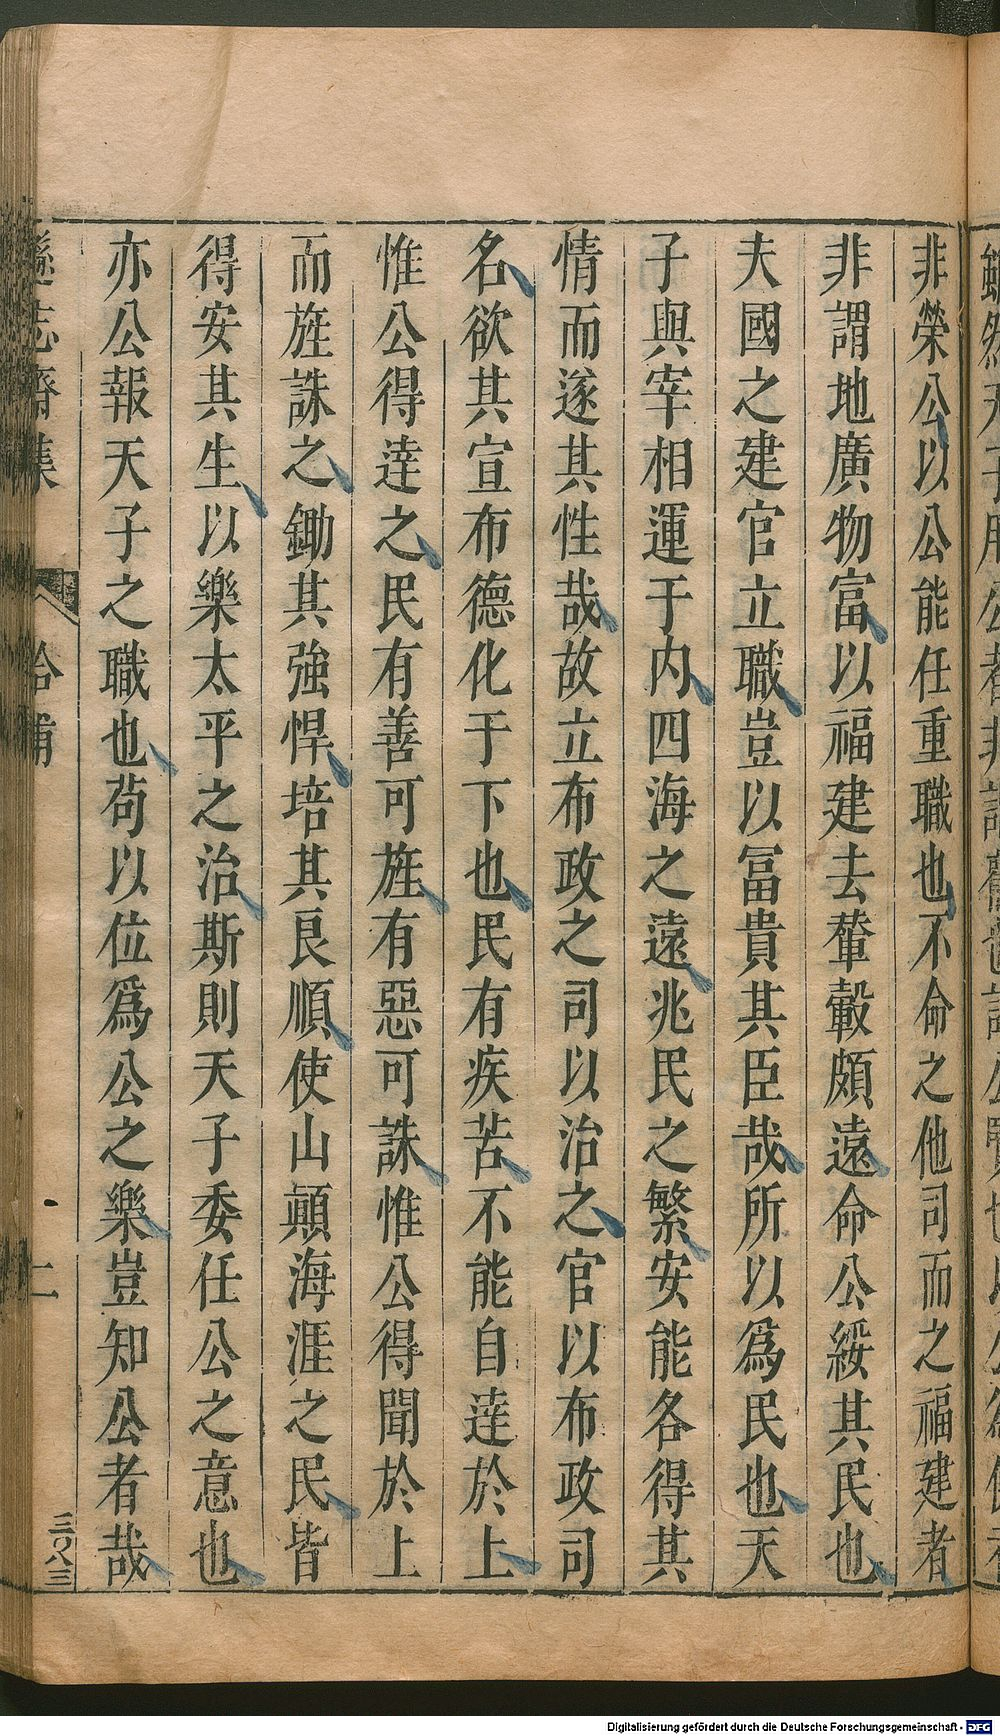 非榮公以公能任重職也不命之他司而之福建者
非謂地廣物富以福建去輦轂頗遠命公綏其民也
夫國之建官立職豈以冨貴其臣哉所以爲民也天
子與宰相運于内四海之遠兆民之繁安能各得其
情而遂其性哉故立布政之司以治之官以布政司
名欲其宣布德化于下也民有疾苦不能自達於上
惟公得達之民有善可旌有惡可誅惟公得聞於上
而旌誅之鋤其強悍培其良順使山顛海涯之民皆
得安其生以樂太平之治斯則天子委任公之意也
亦公報天子之職也苟以位爲公之樂豈知公者哉
遜志齋集
拾補
上
三〇八三
Digitalisierung gefördert durch die Deutsche Forschungsgemeinschaft - DFG